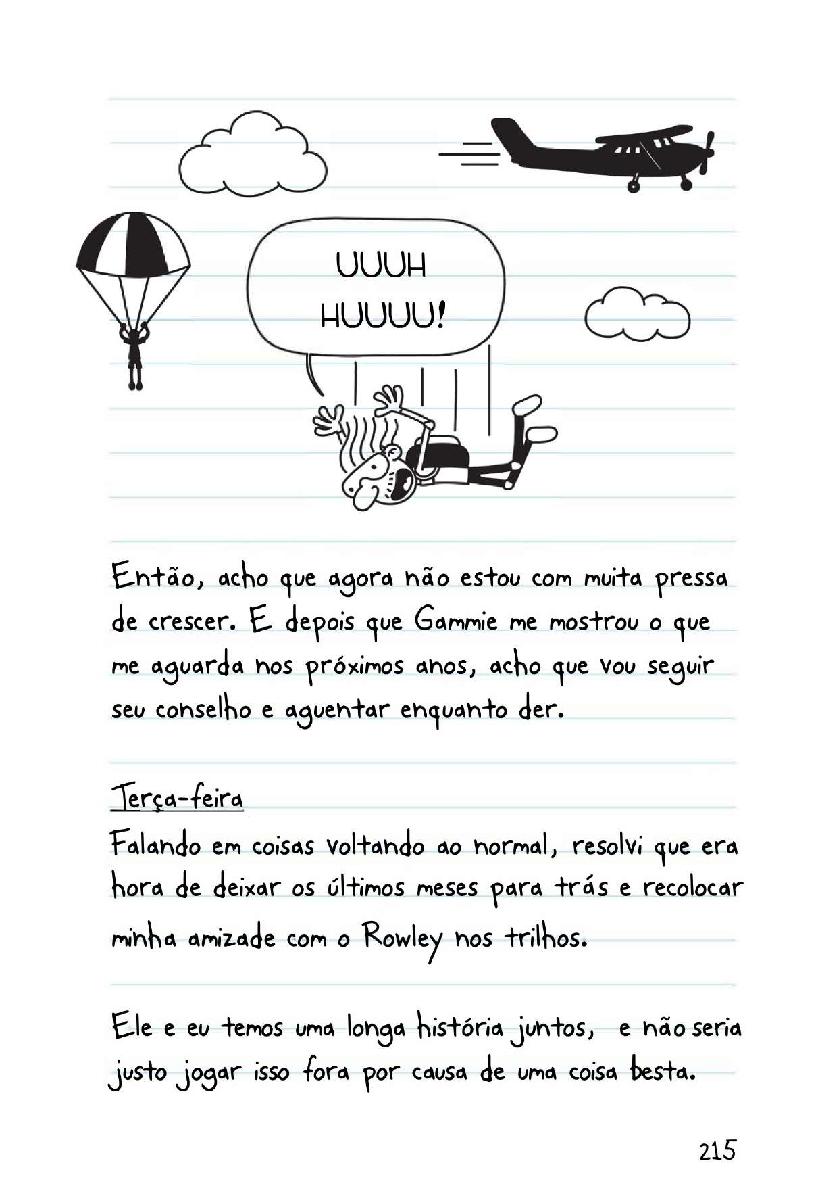 UUUH
HUUUU!
Então, acho que agora não estou com muita pressa
de crescer. E depois que Gammie me mostrou o que
me aguarda nos próximos anos, acho que vou seguir
seu conselho e aguentar enquanto der.
Terça-feira
Falando em coisas voltando ao normal, resolvi que era
hora de deixar os últimos meses para trás e recolocar
minha amizade com o Rowley nos trilhos.
Ele e eu temos uma longa história juntos, e não seria
justo jogar isso fora por causa de uma coisa besta.
215